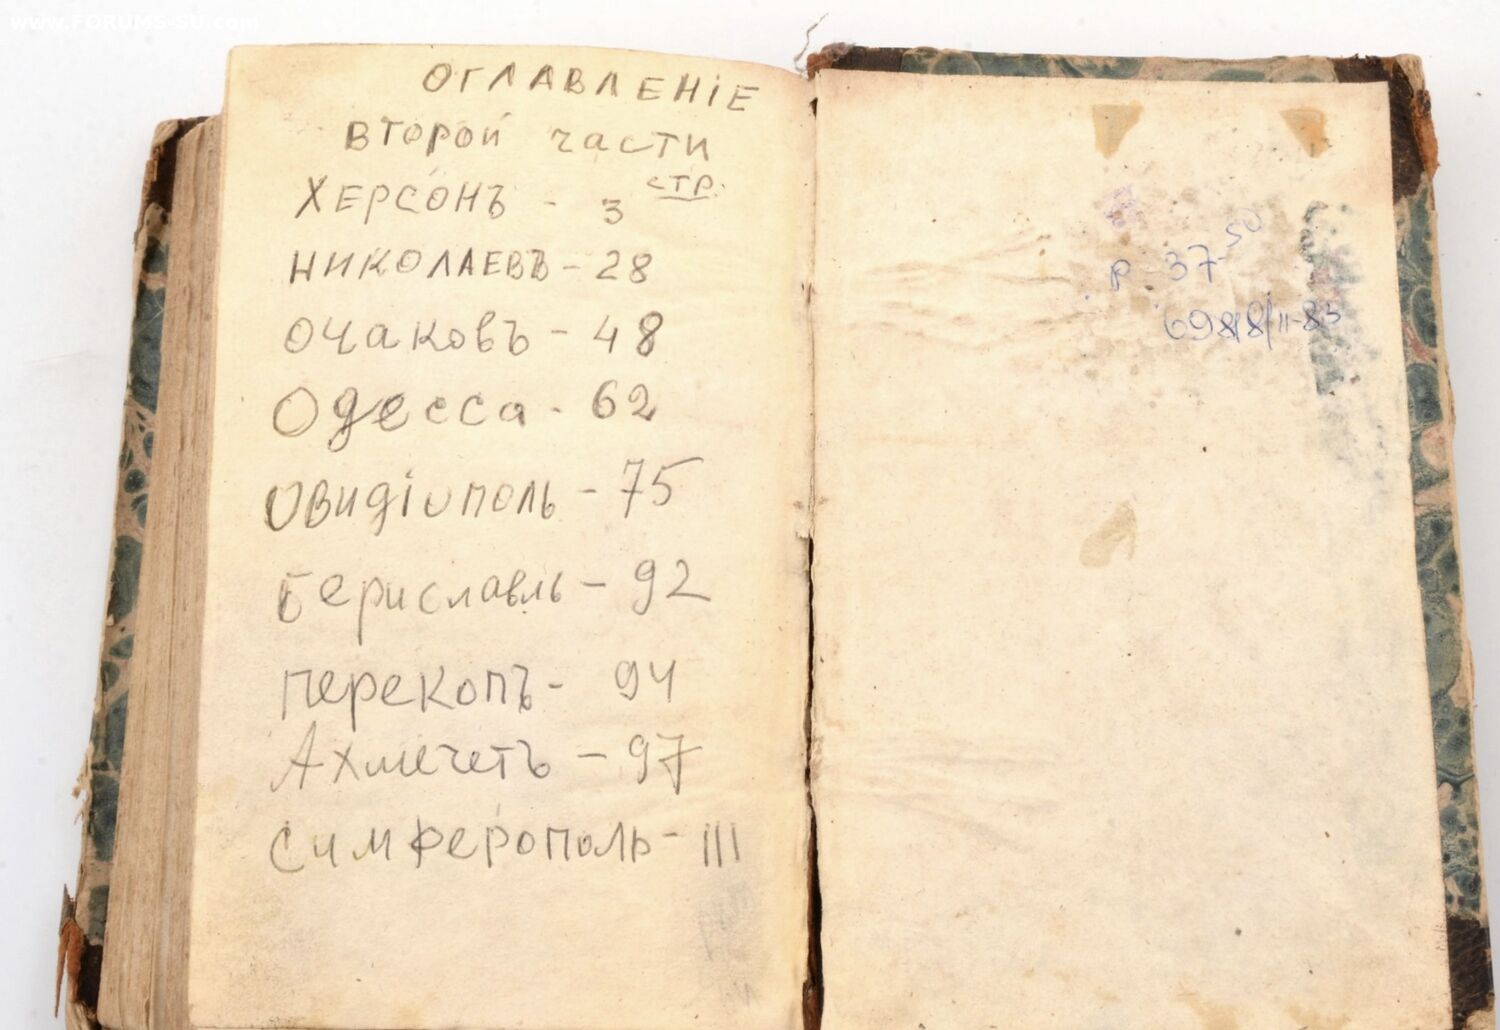 www.FORUMS-SU.com
ОГЛАВЛЕНІЕ
ВТОРОЙ ЧАСТИ
стр.
ХЕРСОНЪ - 3
НИКОЛАЕВЪ - 28
ОЧАКОВЪ - 48
Одесса - 62
Овидіополь - 75
Бериславль - 92
перекопъ - 94
Ахмечетъ - 97
Симферополь - 111
р - 37-50